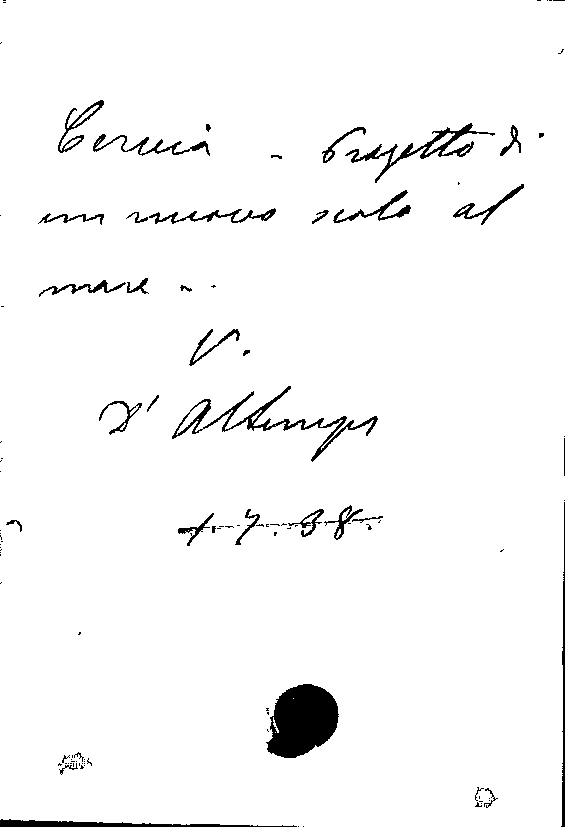 Cervia - Progetto di
un nuovo scolo al
mare -.
V.
D'Altemps
1.7.38.